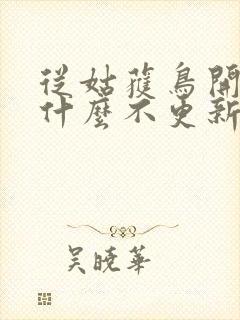 從姑蔆鳥開
什麼不更新
吳曉華